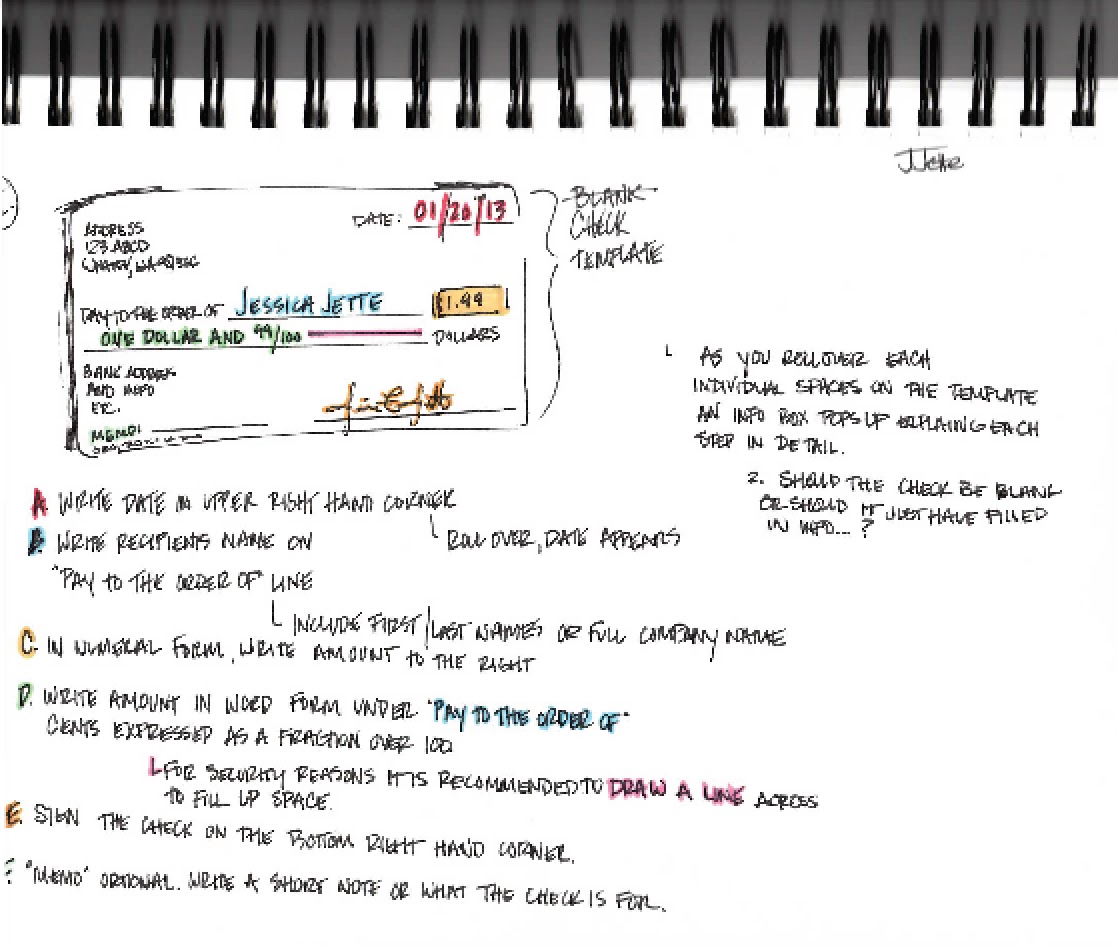 JJette
ADDRESS
123 ABCD
DATE: 01/20/13
BLANK
CHECK
TEMPLATE
PAY TO THE ORDER OF JESSICA JETTE $1.99
ONE DOLLAR AND 99/100 DOLLARS
BANK ADDRESS
AND INFO
ETC.
MEMO:
1. AS YOU ROLLOVER EACH
INDIVIDUAL SPACES ON THE TEMPLATE
AN INFO BOX POPS UP EXPLAING EACH
STEP IN DETAIL.
2. SHOULD THE CHECK BE BLANK
OR SHOULD IT JUST HAVE FILLED
IN INFO... ?
A. WRITE DATE IN UPPER RIGHT HAND CORNER
ROLL OVER, DATE APPEARS
B. WRITE RECIPIENTS NAME ON
"PAY TO THE ORDER OF" LINE
INCLUDE FIRST/LAST NAMES OR FULL COMPANY NAME
C. IN NUMERAL FORM, WRITE AMOUNT TO THE RIGHT
D. WRITE AMOUNT IN WORD FORM UNDER "PAY TO THE ORDER OF"
CENTS EXPRESSED AS A FRACTION OVER 100
FOR SECURITY REASONS IT IS RECOMMENDED TO DRAW A LINE ACROSS
TO FILL UP SPACE.
E. SIGN THE CHECK ON THE BOTTOM RIGHT HAND CORNER.
"MEMO" OPTIONAL. WRITE A SHORT NOTE OR WHAT THE CHECK IS FOR.